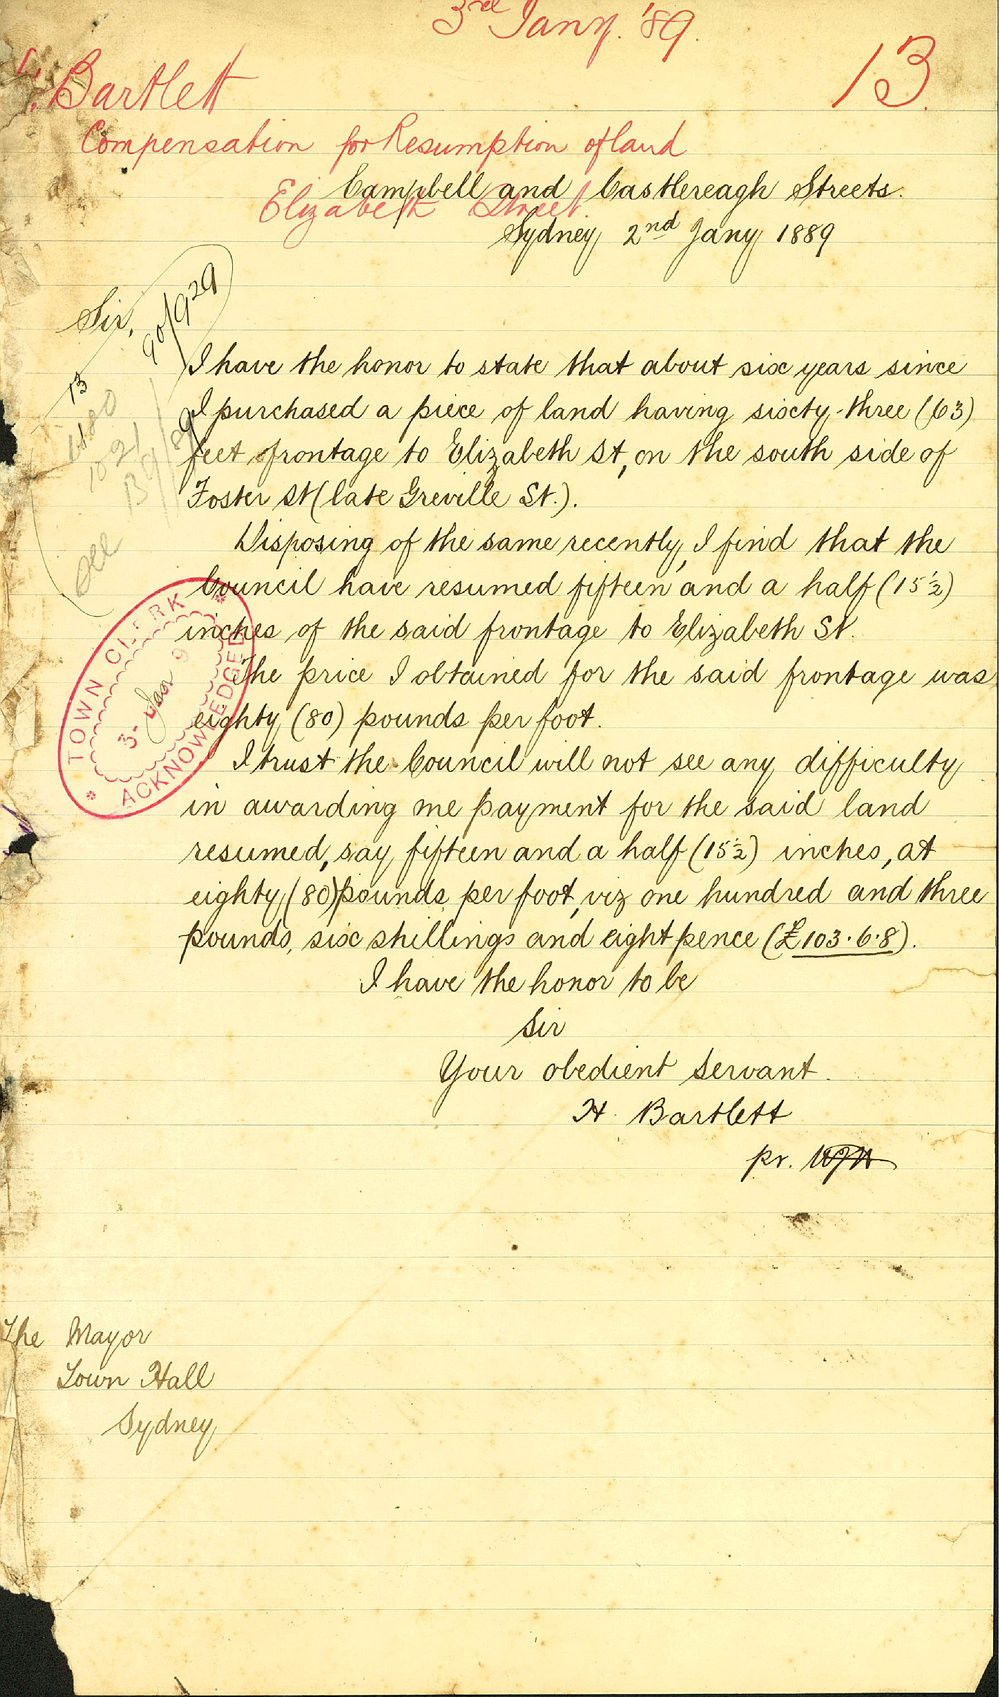 3rd Jany. '89.
13.
Bartlett
Compensation for Resumption of land
Elizabeth Street.
Campbell and Castlereagh Streets.
Sydney 2nd Jany 1889
Sir,
90/929
13
I have the honor to state that about six years since
I purchased a piece of land having sixty-three (63)
feet frontage to Elizabeth St, on the south side of
Foster St (late Greville St.).
Disposing of the same recently, I find that the
Council have resumed fifteen and a half (15½)
inches of the said frontage to Elizabeth St.
The price I obtained for the said frontage was
eighty (80) pounds per foot.
I trust the Council will not see any difficulty
in awarding me payment for the said land
resumed, say fifteen and a half (15½) inches, at
eighty (80) pounds per foot, viz one hundred and three
pounds, six shillings and eight pence (£103.6.8).
I have the honor to be
Sir
Your obedient servant.
H. Bartlett
pr.
TOWN CLERK
3- Jan 9
ACKNOWLEDGED
The Mayor
Town Hall
Sydney